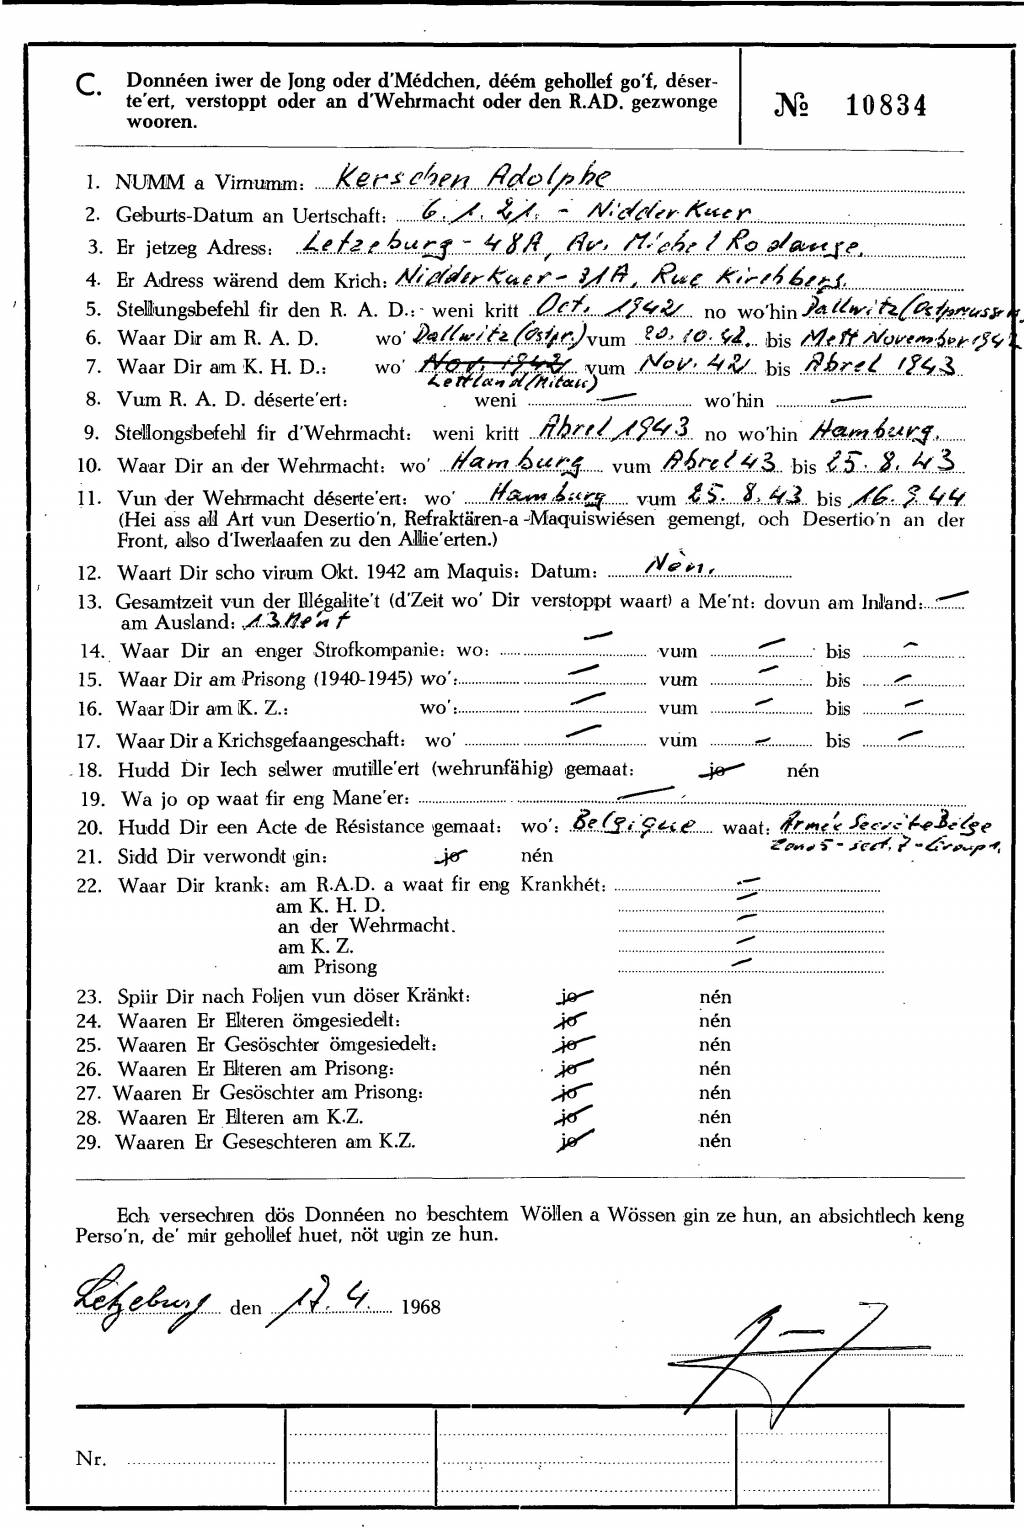 C. Donnéen iwer de Jong oder d'Médchen, déém gehollef go'f, déser-
te'ert, verstoppt oder an d'Wehrmacht oder den R.AD. gezwonge
wooren.
№ 10834
1. NUMM a Virnumm: Kerschen Adolphe
2. Geburts-Datum an Uertschaft: 6. 1. 21. - Nidderkuer
3. Er jetzeg Adress: Letzeburg - 48A, Av. Michel Rodange.
4. Er Adress wärend dem Krich: Nidderkuer - 31A, Rue Kirchberg.
5. Stellungsbefehl fir den R. A. D.: weni kritt Oct. 1942 no wo'hin Dallwitz (Ostpreussen)
6. Waar Dir am R. A. D. wo' Dallwitz (Ostpr.) vum 20. 10. 42. bis Mett November 1942
7. Waar Dir am K. H. D.: wo' Nov. 1942 vum Nov. 42 bis Abrel 1943
Lettland (Mitau)
8. Vum R. A. D. déserte'ert: weni — wo'hin —
9. Stellongsbefehl fir d'Wehrmacht: weni kritt Abrel 1943 no wo'hin Hamburg.
10. Waar Dir an der Wehrmacht: wo' Hamburg vum Abrel 43 bis 25. 8. 43
11. Vun der Wehrmacht déserte'ert: wo' Hamburg vum 25. 8. 43 bis 16. 9. 44
(Hei ass all Art vun Desertio'n, Refraktären-a-Maquiswiésen gemengt, och Desertio'n an der
Front, also d'Iwerlaafen zu den Allie'erten.)
12. Waart Dir scho virum Okt. 1942 am Maquis: Datum: Nèn.
13. Gesamtzeit vun der Illégalite't (d'Zeit wo' Dir verstoppt waart) a Me'nt: dovun am Inland: —
am Ausland: 13 Me'nt
14. Waar Dir an enger Strofkompanie: wo: — vum — bis —
15. Waar Dir am Prisong (1940-1945) wo': — vum — bis —
16. Waar Dir am K. Z.: wo': — vum — bis —
17. Waar Dir a Krichsgefaangeschaft: wo' — vum — bis —
18. Hudd Dir Iech selwer mutille'ert (wehrunfähig) gemaat: jo nén
19. Wa jo op waat fir eng Mane'er: —
20. Hudd Dir een Acte de Résistance gemaat: wo': Belgique waat: Armée Secrète Belge
Zone 5 - sect. 7 - Group 1.
21. Sidd Dir verwondt gin: jo nén
22. Waar Dir krank: am R.A.D. a waat fir eng Krankhét: —
am K. H. D. —
an der Wehrmacht. —
am K. Z. —
am Prisong —
23. Spiir Dir nach Foljen vun döser Kränkt: jo nén
24. Waaren Er Elteren ömgesiedelt: jo nén
25. Waaren Er Gesöschter ömgesiedelt: jo nén
26. Waaren Er Elteren am Prisong: jo nén
27. Waaren Er Gesöschter am Prisong: jo nén
28. Waaren Er Elteren am K.Z. jo nén
29. Waaren Er Geseschteren am K.Z. jo nén
Ech versechren dös Donnéen no beschtem Wöllen a Wössen gin ze hun, an absichtlech keng
Perso'n, de' mir gehollef huet, nöt ugin ze hun.
Letzeburg den 17. 4. 1968
Nr.